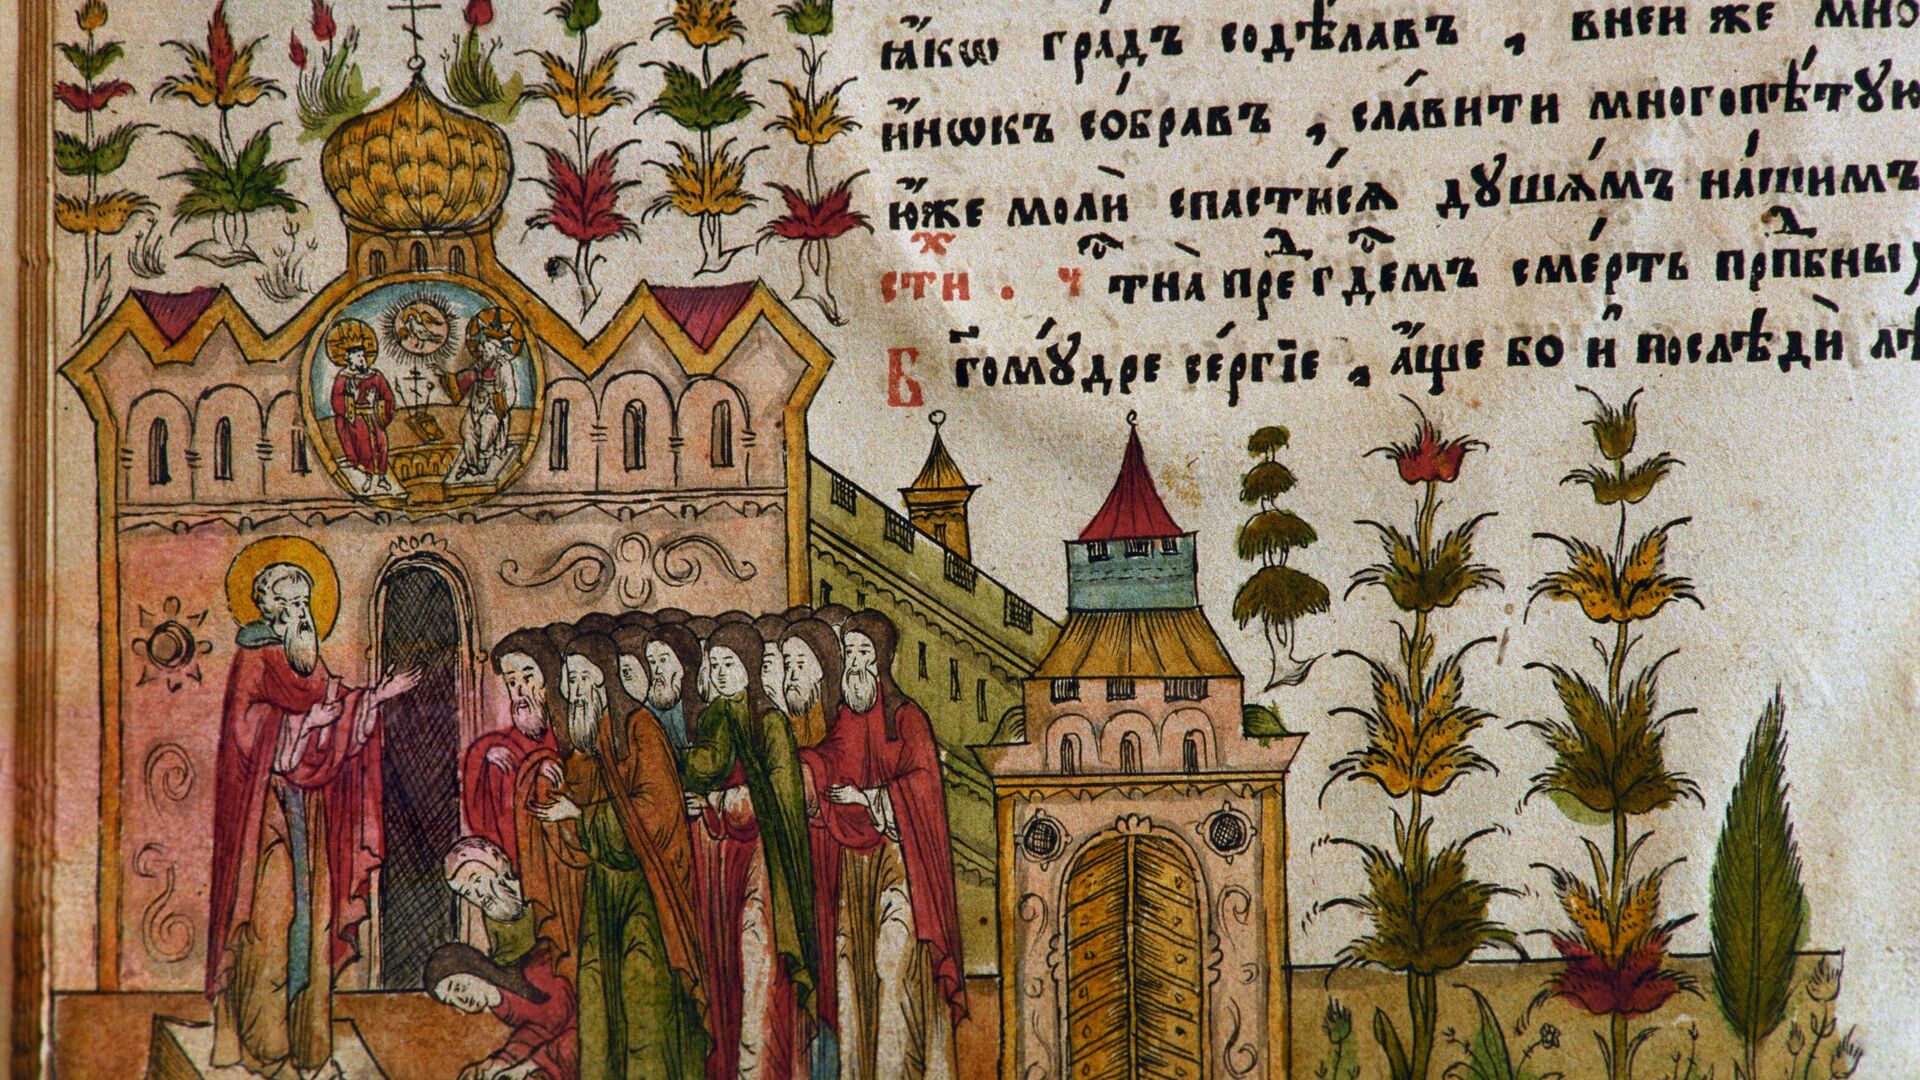 ꙗ҆́кѡ гра́дъ содѣ́лавъ , вней же мно
и҆́нѡкъ со́бравъ , сла́вити многопѣ́тую
ю҆́же молѝ спасти́сѧ дꙋша́мъ на́шимъ
стиⷯ . чⷭ҇тна̀ преⷣ гдⷭ҇емъ сме́рть прпⷣбныⷯ
Бг҃омꙋ́дре се́ргїе , а҆́ще бо и҆ послѣдѝ лѣ